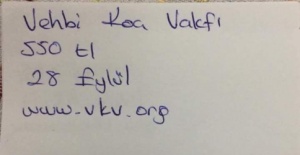 Vehbi Koa Vakfı
550 tl
28 Eylül
www.vkv.org